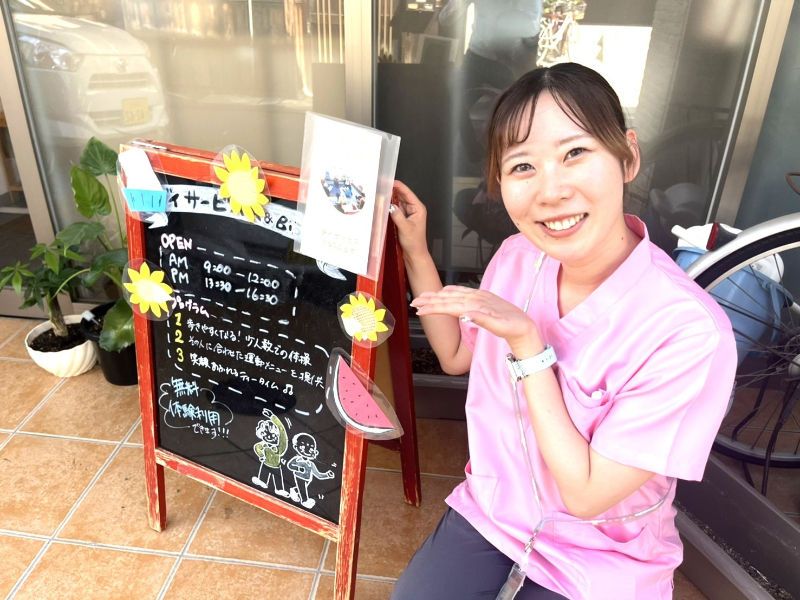 デイサービス
& Bi
OPEN
AM 9:00--12:00
PM 13:30--16:30
プログラム
1 歩きやすくなる！少人数での体操
2 その人に合わせた運動メニューを提供
3 笑顔あふれるティータイム♫
無料
体験利用
できます!!!